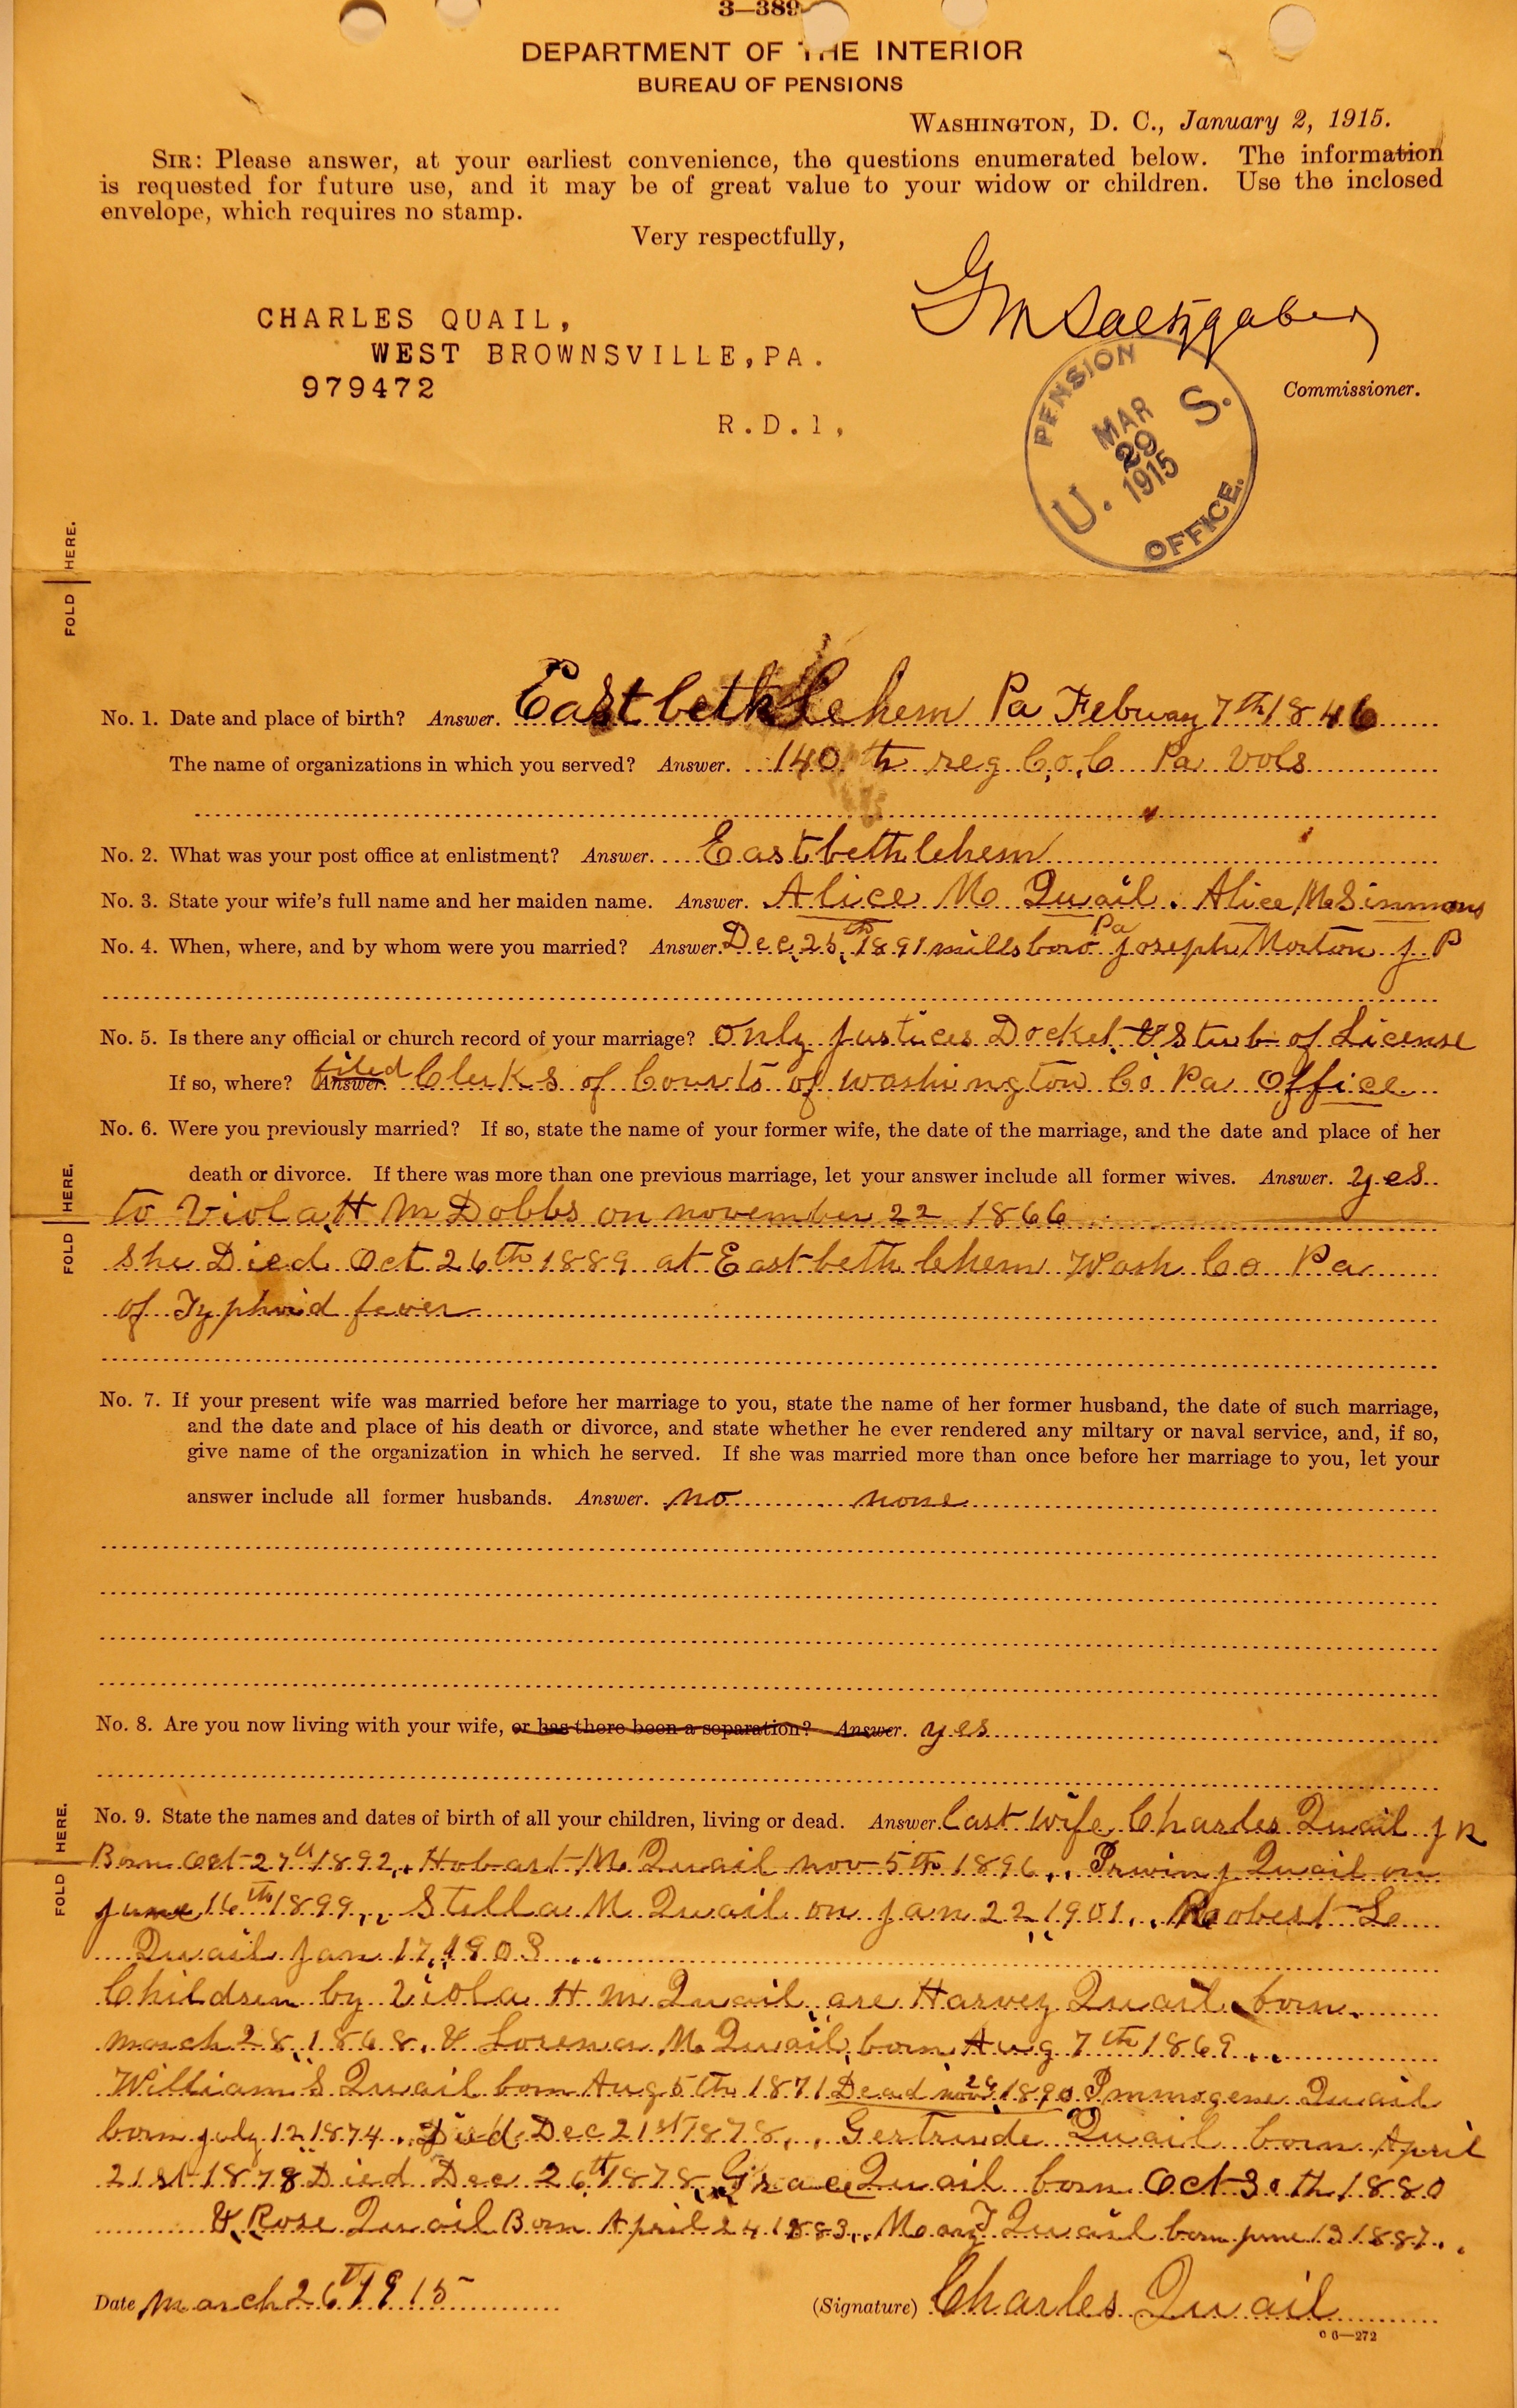 3—389
DEPARTMENT OF THE INTERIOR
BUREAU OF PENSIONS
WASHINGTON, D. C., January 2, 1915.
SIR: Please answer, at your earliest convenience, the questions enumerated below. The information
is requested for future use, and it may be of great value to your widow or children. Use the inclosed
envelope, which requires no stamp.
Very respectfully,
G M Saltzgaber
Commissioner.
CHARLES QUAIL,
WEST BROWNSVILLE, PA.
979472
R.D.1,
U. S. PENSION OFFICE.
MAR 29 1915
FOLD HERE.
No. 1. Date and place of birth? Answer. East bethlehem Pa Febuary 7th 1846
The name of organizations in which you served? Answer. 140th reg Co. C Pa Vols
No. 2. What was your post office at enlistment? Answer. East bethlehem
No. 3. State your wife's full name and her maiden name. Answer. Alice M Quail. Alice M Simmons
No. 4. When, where, and by whom were you married? Answer. Dec 25th 1891 millsboro Pa Joseph Morton J P
No. 5. Is there any official or church record of your marriage? only Justices Docket & Stub of License
If so, where? Answer. filed Clerks of Courts of washington Co Pa Office
No. 6. Were you previously married? If so, state the name of your former wife, the date of the marriage, and the date and place of her
death or divorce. If there was more than one previous marriage, let your answer include all former wives. Answer. yes
FOLD HERE.
to Viola H M Dobbs on november 22 1866
she Died Oct 26th 1889 at East bethlehem Wash Co Pa
of Typhoid fever
No. 7. If your present wife was married before her marriage to you, state the name of her former husband, the date of such marriage,
and the date and place of his death or divorce, and state whether he ever rendered any miltary or naval service, and, if so,
give name of the organization in which he served. If she was married more than once before her marriage to you, let your
answer include all former husbands. Answer. no none
No. 8. Are you now living with your wife, or has there been a separation? Answer. yes
No. 9. State the names and dates of birth of all your children, living or dead. Answer. last wife Charles Quail Jr
FOLD HERE.
Born Oct 27th 1892. Hobart M Quail nov 5th 1896. Irwin J Quail on
June 16th 1899. Stella M Quail on Jan 22 1901. Roobert L
Quail Jan 17 1903
Children by Viola H M Quail are Harvey Quail born
march 28 1868. & Lorena M Quail born Aug 7th 1869
William S Quail born Aug 5th 1871 Dead nov 28 1890 Immogene Quail
born july 12 1874. Died Dec 21st 1878. Gertrude Quail born April
21st 1878 Died Dec 26th 1878 Grace Quail born Oct 30th 1880
& Rose Quail Born April 24 1883. Mary J Quail born june 13 1887.
Date march 26th 1915
(Signature) Charles Quail
6—272